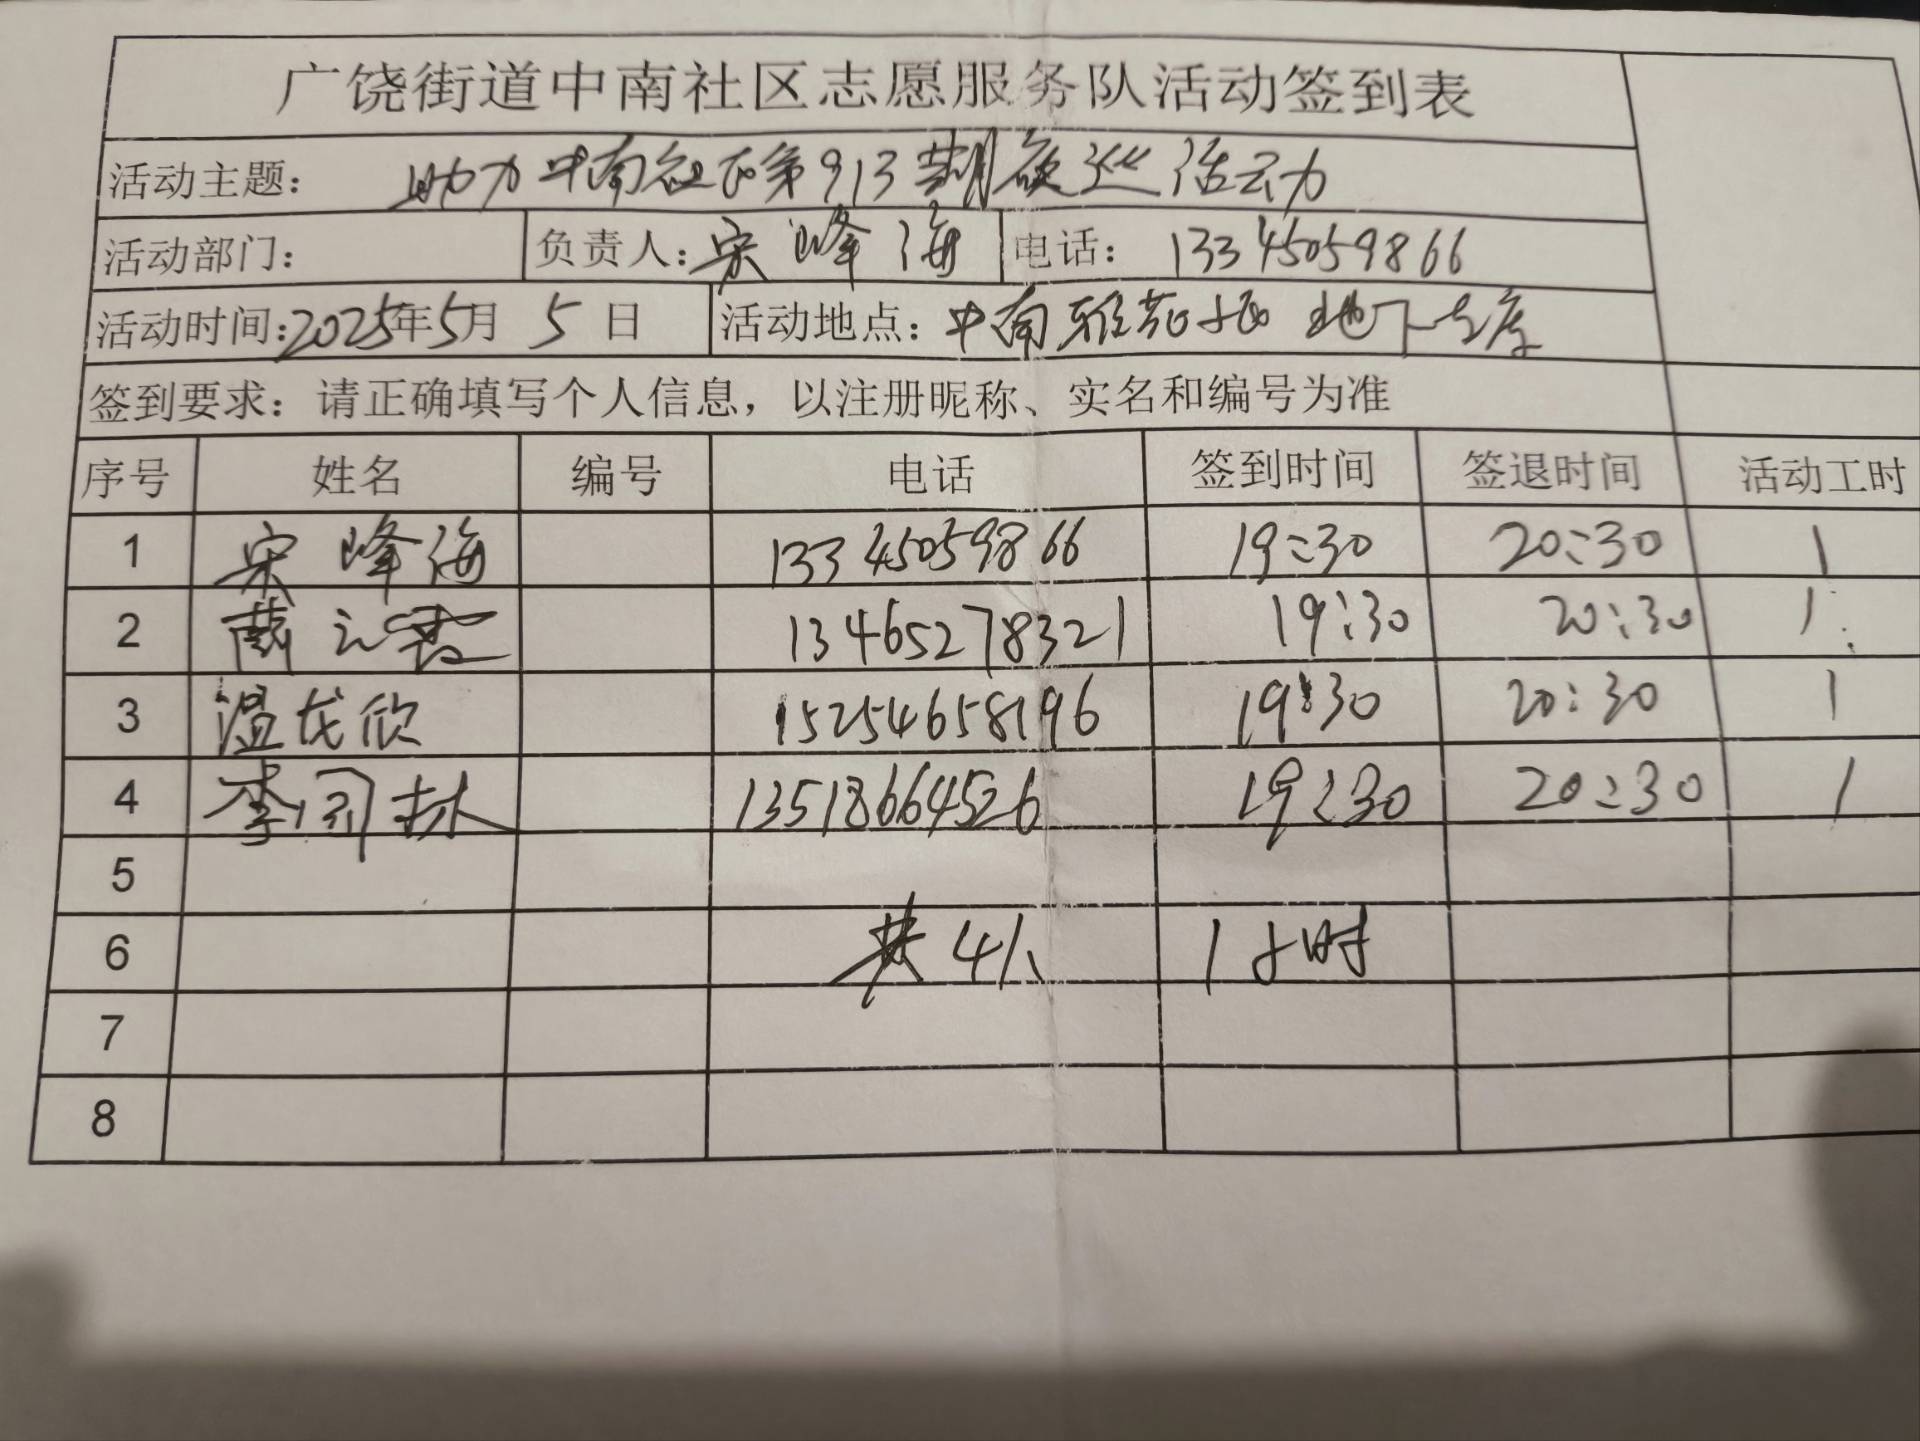 广饶街道中南社区志愿服务队活动签到表
活动主题: 助力中南社区第913期夜巡活动
活动部门: 负责人: 宋峰海 电话: 13345059866
活动时间: 2025年5月5日 活动地点: 中南雅苑小区 地下车库
签到要求: 请正确填写个人信息，以注册昵称、实名和编号为准
序号 姓名 编号 电话 签到时间 签退时间 活动工时
1 宋峰海 13345059866 19:30 20:30 1
2 13465278321 19:30 20:30 1
3 温龙欣 15254658196 19:30 20:30 1
4 李林 13518664526 19:30 20:30 1
5
6 共4人 1小时
7
8